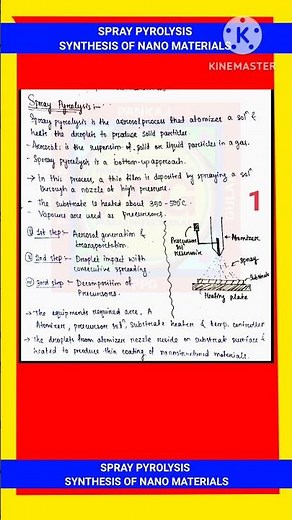 SPRAY PYROLYSIS
SYNTHESIS OF NANO MATERIALS
KINEMASTER
Spray Pyrolysis:-
Spray pyrolysis is the aerosol process that atomizes a solⁿ &
heats the droplets to produce solid particles.
- Aerosol: is the suspension of solid or liquid particles in a gas.
- Spray pyrolysis is a bottom-up approach.
→ In this process, a thin film is deposited by spraying a solⁿ
through a nozzle at high pressure.
- The substrate is heated about 350 - 500°C.
- Vapours are used as Precursors.
1
1st step:- Aerosol generation &
transportation.
2nd step:- Droplet impact with
consecutive spreading.
3rd step:- Decomposition of
Precursors.
Precursor
solⁿ
reservoir
Atomizer
spray
substrate
Heating plate
→ The equipments required are, A
Atomizer, precursor solⁿ, substrate heater & temp. controller
→ The droplets from atomizer nozzle reside on substrate surface &
heated to produce thin coating of nanostructured materials.
SPRAY PYROLYSIS
SYNTHESIS OF NANO MATERIALS